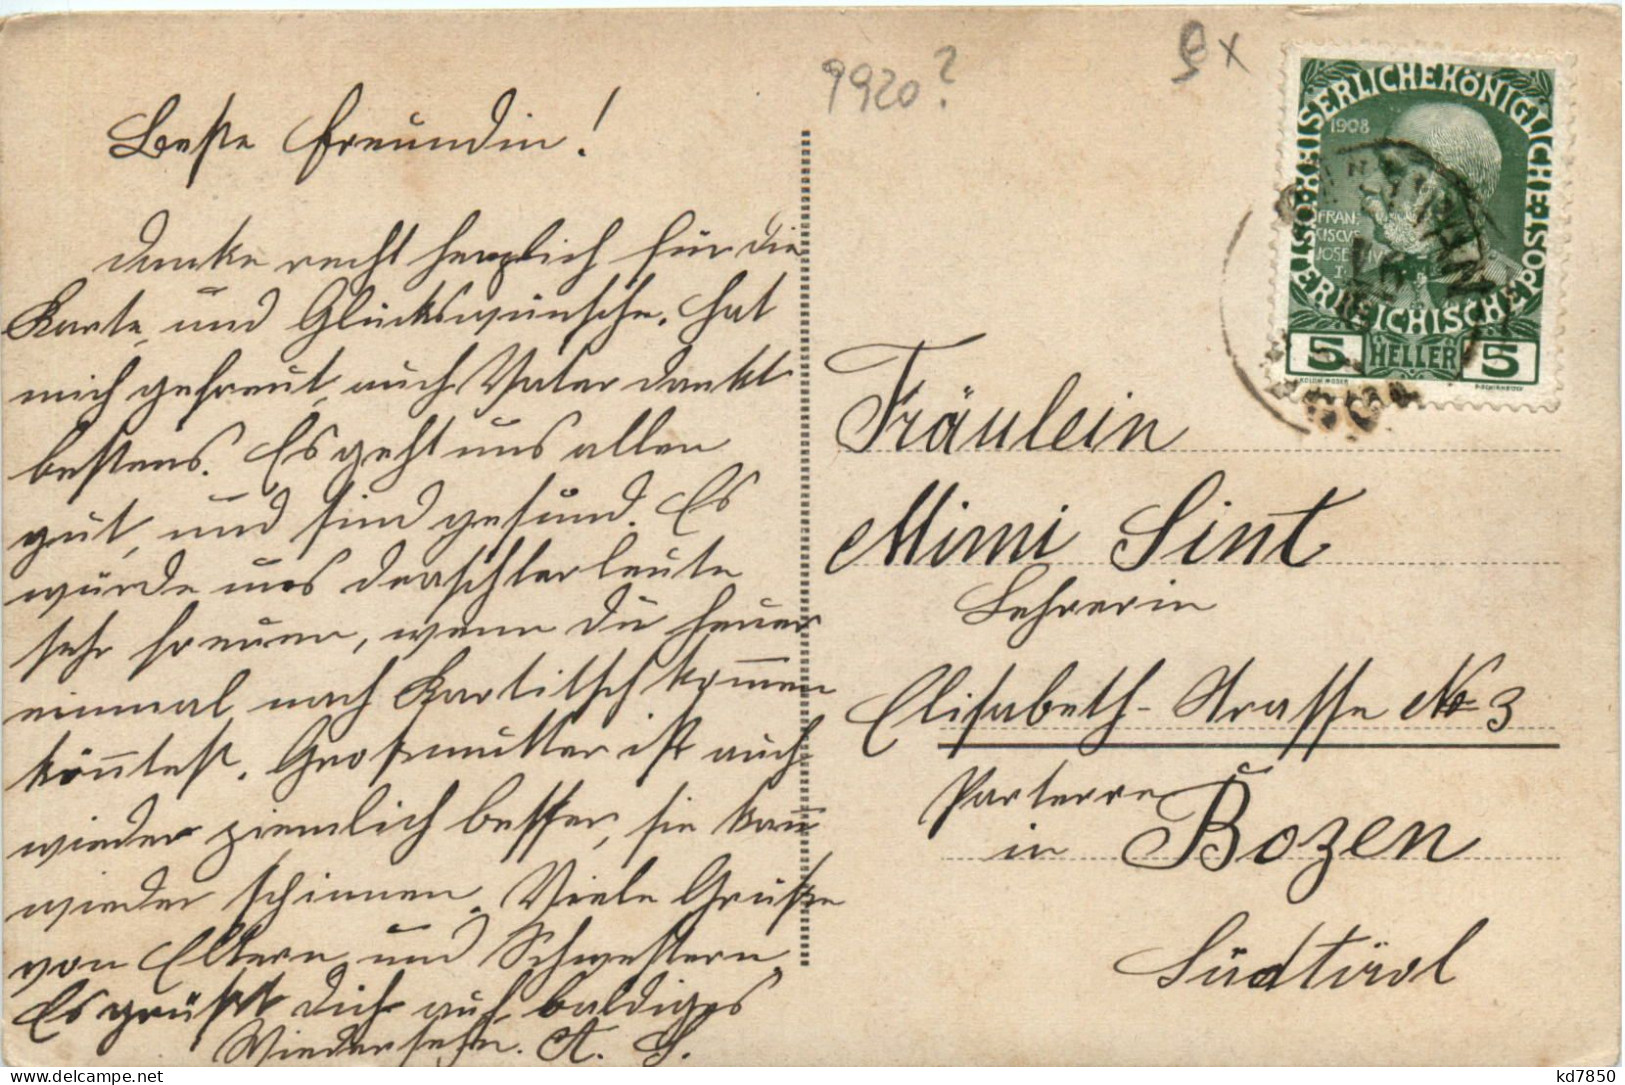 9920?
Beste Freundin!
Danke recht herzlich für die
Karte und Glückswünsche. Hat
mich gefreut, auch Vater dankt
bestens. Es geht uns allen
gut, und sind gesund. Es
würde uns Leute
sehr freuen, wenn du heuer
einmal nach Kartitsch kommen
könntest. Großmutter ist auch
wieder ziemlich besser, sie kann
wieder spinnen. Viele Grüße
von Eltern und Schwestern.
Es grüßt Dich auf baldiges
Wiedersehn. A. S.
ÖSTERREICHISCHE POST KAISERLICHE KÖNIGLICHE
1908
FRAN-
CISCVS
JOSEPHVS
I.
5 HELLER 5
Fräulein
Mimi Sint
Lehrerin
Elisabeth-Strasse No 3
Parterre
in Bozen
Südtirol
kd7850